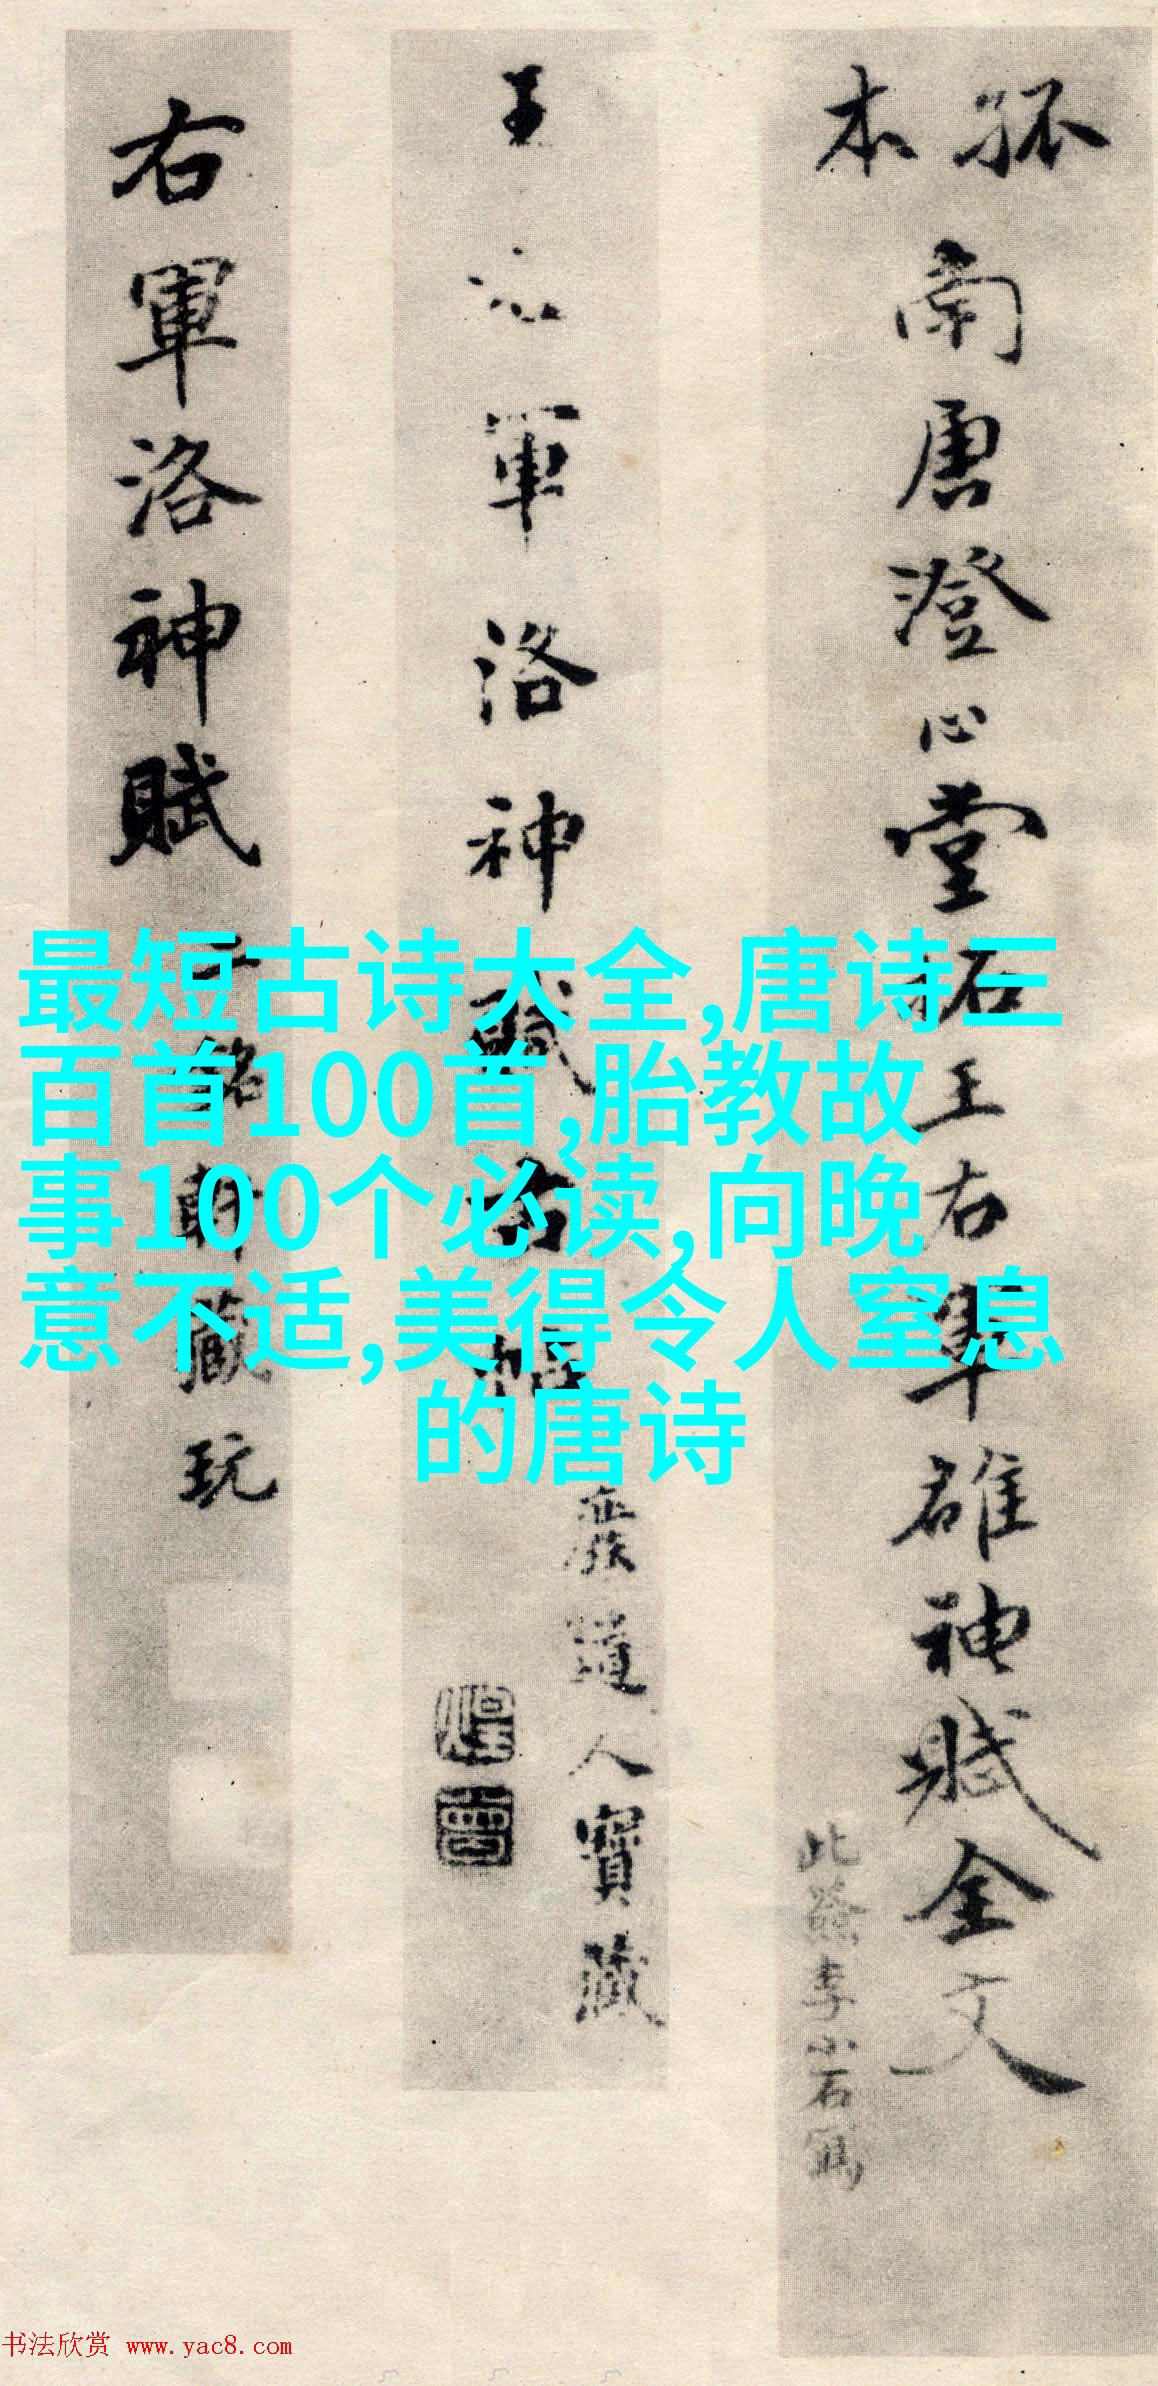 孤本
南唐澄心堂拓王右軍雒神賦全文
此簽李小石寫
王右軍洛神賦
道人寶藏
右軍洛神賦
軒藏玩
最短古诗大全,唐诗三
百首100首,胎教故
事100个必读,向晚
意不适,美得令人窒息
的唐诗
书法欣赏 www.yac8.com